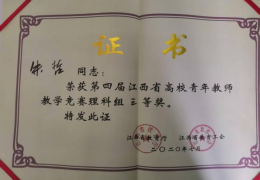 证书
同志：
荣获第四届江西省高校青年教师
教学竞赛理科组三等奖。
特发此证
江西省教育厅 江西省教育工会
二〇二〇年七月